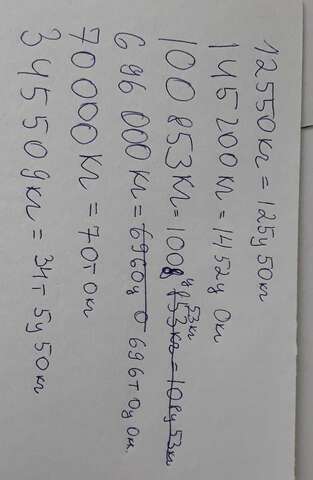 12550кг = 125ц 50кг
145200кг = 1452ц 0кг
100853кг = 1008ц 53кг
696000кг = 696т 0ц 0кг
70000кг = 70т 0кг
345509кг = 34т 5ц 50кг